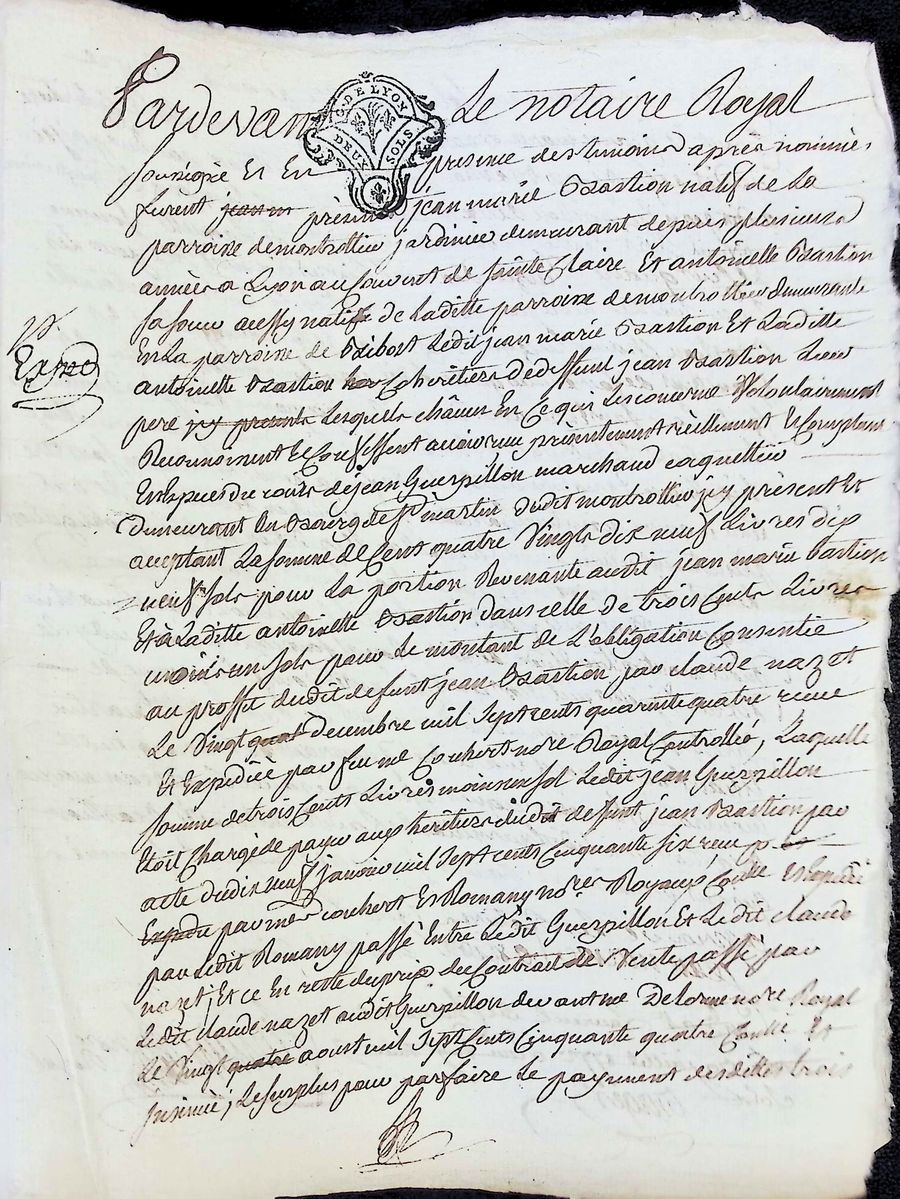 Pardevant Le notaire Royal
G. DE LYON
DEUX SOLS
soussigné Et En presence des temoins après nommés
furent jean m présents jean marie Bastion natif de La
parroisse de montrottier jardinier demeurant depuis plusieurs
années a Lyon au Couvent de sainte Claire Et antoinette Bastion
sa soeur aussy native de Laditte parroisse de montrottier demeurante
En La parroisse de Bibost Ledit jean marie Bastion Et Laditte
antoinette Bastion Coheritiers de deffunt jean Bastion Leur
pere icy presents Lesquels chacun En Ce qui Les concerne Volontairement
Reconnoissent Et Confessent avoir reçu présentement réellement Et Comptant
En Espèces du cours de jean Guerpillon marchand coquettier
demeurant En Bourg de St martin dudit montrottier icy présent Et
acceptant La somme de Cent quatre Vingts dix neuf Livres dix
neuf sols pour La portion Revenante audit jean marie Bastion
Et à Laditte antoinette Bastion dans celle de trois Cents Livres
moins un sols pour Le montant de L'obligation Consentie
au proffit dudit defunt jean Bastion par claude nazet
Le Vingt quat decembre mil sept cents quarante quatre reçue
Et Expediée par feu me Couhert nore Royal Controllé, Laquelle
somme de trois Cents Livres moins un sol Ledit jean Guerpillon
Etoit Chargé de payer aux heritiers dudit defunt jean Bastion par
acte du dix neuf janvier mil sept cents Cinquante six reçu p. et
Expedie par mes couhert Et Romany nores Royaux, Conllé Et Expedié
par Ledit Romany passé Entre Ledit Guerpillon Et Ledit claude
nazet, Et ce En reste du prix du Contrat de Vente passé par
Ledit claude nazet audit Guerpillon devant me Delorme nore Royal
Le Vingt quatre aoust mil sept Cents Cinquante quatre Conllé Et
insinué; Le surplus pour parfaire Le payement desdittes trois